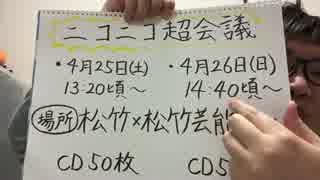 ニコニコ超会議
・4月25日(土) ・4月26日(日)
13:20頃〜 14:40頃〜
場所 松竹×松竹芸能
CD50枚 CD5